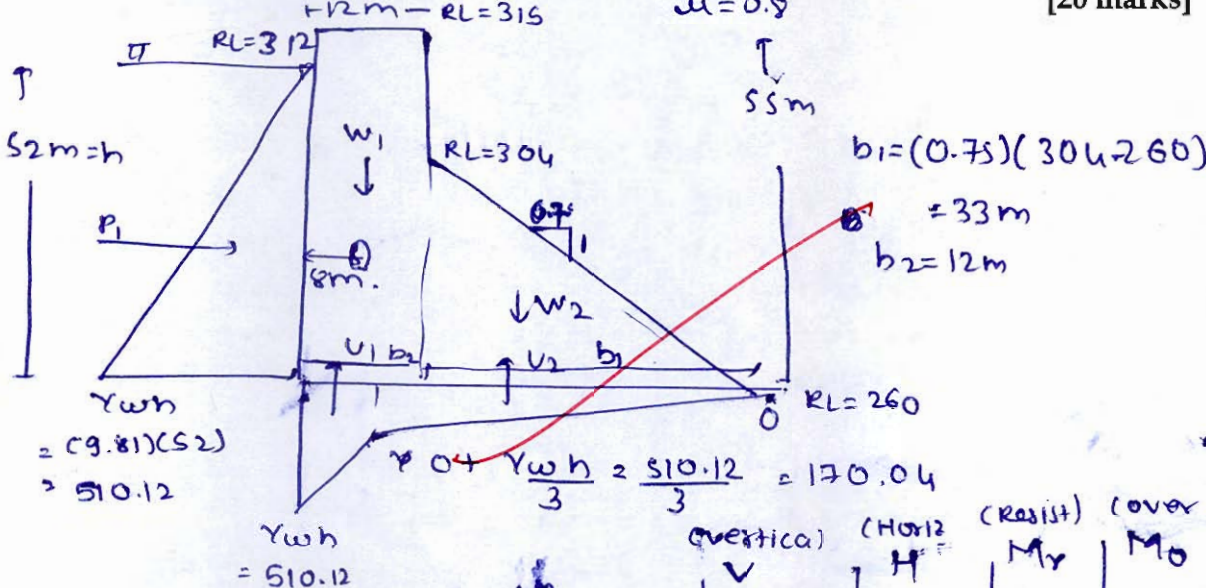 12m RL=315
μ=0.8
[20 marks]
RL=312
55m
52m=h
W1
RL=304
b1=(0.75)(304-260)
=33m
b2=12m
P1
8m.
0.7
1
W2
U1 b2
U2 b1
γwh
=(9.81)(52)
= 510.12
O RL=260
0+ γwh/3 = 510.12/3 = 170.04
γwh
= 510.12
(vertical) V
(Horiz H
(Resist) Mr
(over Mo